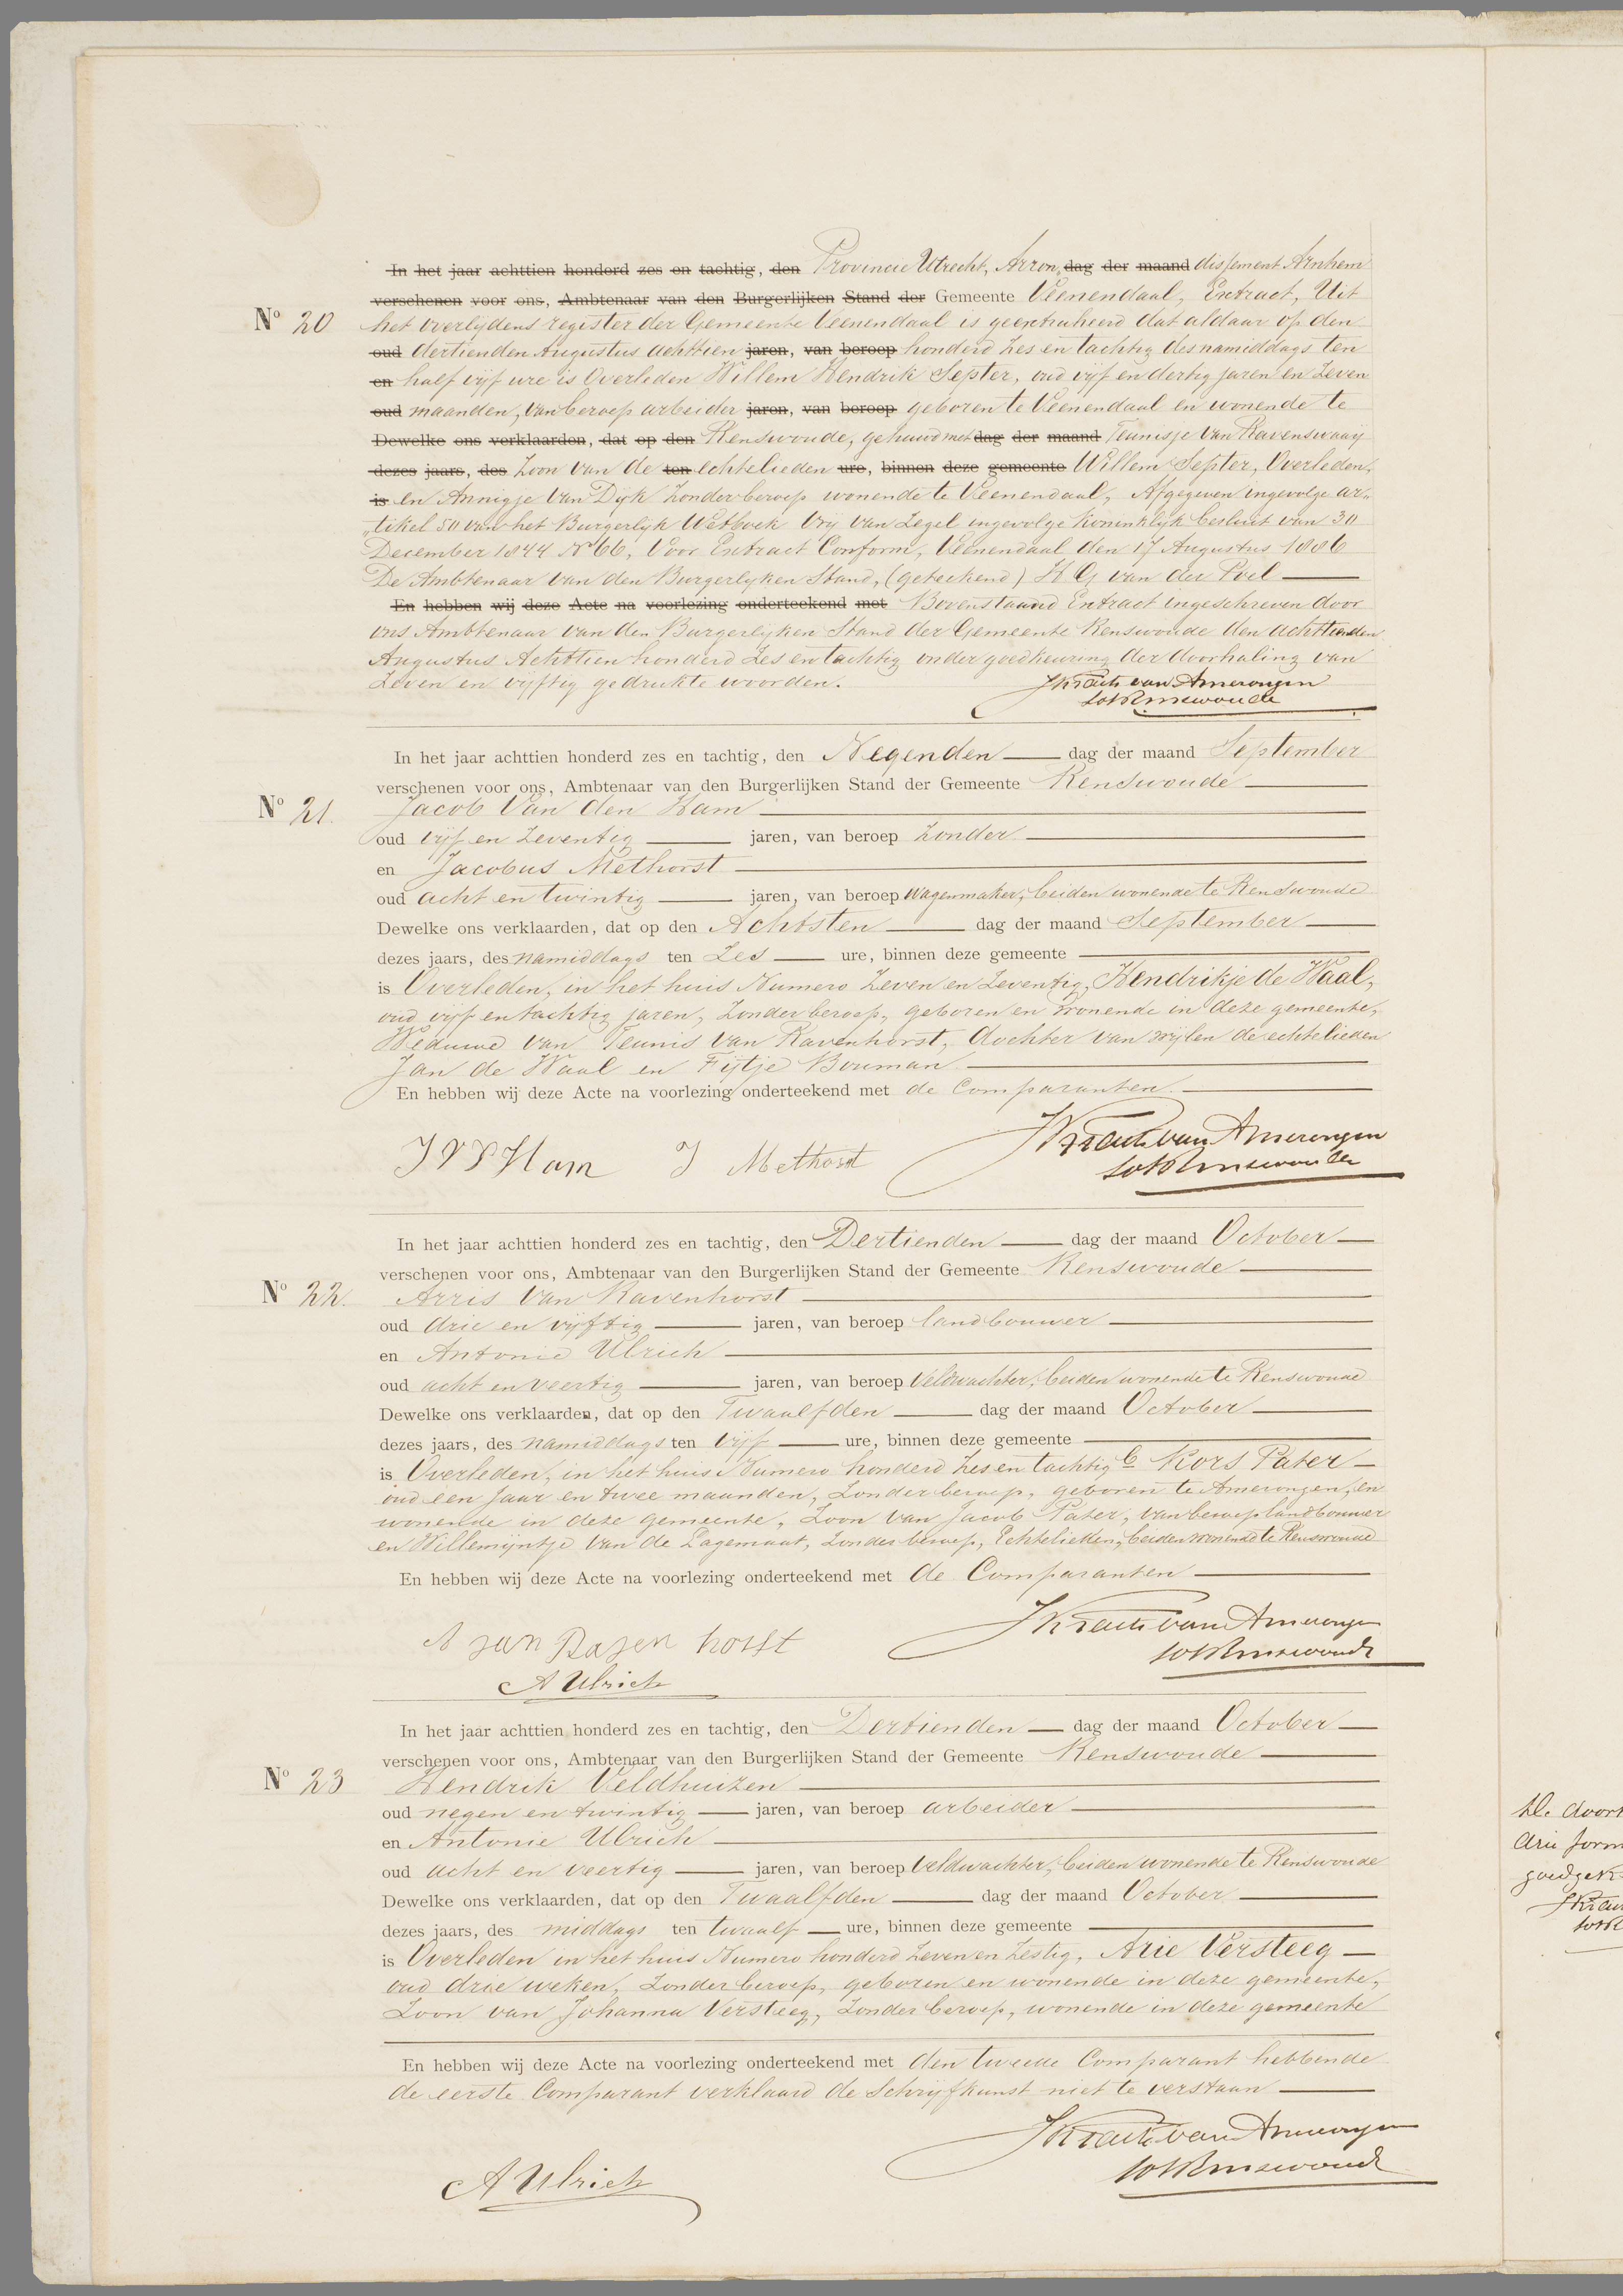 In het jaar achttien honderd zes en tachtig, den Provincie Utrecht, Arron, dag der maand dissement Arnhem
verschenen voor ons, Ambtenaar van den Burgerlijken Stand der Gemeente Veenendaal, Extract, Uit
No 20 het overlijdens register der Gemeente Veenendaal is geextraheerd dat aldaar op den
oud dertienden Augustus achttien jaren, van beroep honderd zes en tachtig des namiddags ten
en half vijf ure is Overleden Willem Hendrik Septer, oud vijf en dertig jaren en zeven
oud maanden, van beroep arbeider jaren, van beroep geboren te Veenendaal en wonende te
Dewelke ons verklaarden, dat op den Renswoude, gehuwd met dag der maand Teunisje Van Ravenswaay
dezes jaars, des Zoon van de ten echtelieden ure, binnen deze gemeente Willem Septer, Overleden,
is en Annigje Van Dijk zonder beroep wonende te Veenendaal, Afgegeven ingevolge ar„
„tikel 50 van het Burgerlijk Wetboek Vrij van Zegel ingevolge Koninklijk besluit van 30
December 1844 No 66, Voor Extract Conform, Veenendaal den 17 Augustus 1886
De Ambtenaar van den Burgerlyken Stand, (geteekend) H G van der Poel
En hebben wij deze Acte na voorlezing onderteekend met Bovenstaand Extract ingeschreven door
ons Ambtenaar van den Burgerlijken Stand der Gemeente Renswoude den achttienden
Augustus Achttien honderd Zes en tachtig onder goedkeuring der doorhaling van
Zeven en vijftig gedrukte woorden. Taets van Amerongen
tot Renswoude
In het jaar achttien honderd zes en tachtig, den Negenden dag der maand September
verschenen voor ons, Ambtenaar van den Burgerlijken Stand der Gemeente Renswoude
No 21. Jacob Van den Ham
oud vijf en Zeventig jaren, van beroep zonder
en Jacobus Methorst
oud acht en twintig jaren, van beroep wagenmaker, beiden wonende te Renswoude
Dewelke ons verklaarden, dat op den Achtsten dag der maand September
dezes jaars, des namiddags ten Zes ure, binnen deze gemeente
is Overleden, in het huis Numero Zeven en Zeventig, Hendrikje de Waal,
oud vijf en tachtig jaren, Zonder beroep, geboren en wonende in deze gemeente,
Weduwe van Teunis Van Ravenhorst, dochter van wijlen de echtelieden
Jan de Waal en Fijtje Bouman
En hebben wij deze Acte na voorlezing onderteekend met de Comparanten
J V D Ham J Methorst Taets van Amerongen
tot Renswoude
In het jaar achttien honderd zes en tachtig, den Dertienden dag der maand October
verschenen voor ons, Ambtenaar van den Burgerlijken Stand der Gemeente Renswoude
No 22. Arris Van Ravenhorst
oud drie en vijftig jaren, van beroep landbouwer
en Antonie Ulrich
oud acht en veertig jaren, van beroep Veldwachter, beiden wonende te Renswoude
Dewelke ons verklaarden, dat op den Twaalfden dag der maand October
dezes jaars, des namiddags ten Vijf ure, binnen deze gemeente
is Overleden, in het huis Numero honderd Zes en tachtig b Kors Pater
oud een Jaar en twee maanden, Zonder beroep, geboren te Amerongen, en
wonende in deze gemeente, Zoon van Jacob Pater, van beroep landbouwer
en Willemijntje Van de Lagemaat, Zonder beroep, Echtelieden, beiden wonende te Renswoude
En hebben wij deze Acte na voorlezing onderteekend met de Comparanten
A van Rasen horst Taets van Amerongen
A Ulrich tot Renswoude
In het jaar achttien honderd zes en tachtig, den Dertienden dag der maand October
verschenen voor ons, Ambtenaar van den Burgerlijken Stand der Gemeente Renswoude
No 23 Hendrik Veldhuizen
oud negen en twintig jaren, van beroep arbeider
en Antonie Ulrich
oud acht en veertig jaren, van beroep Veldwachter, beiden wonende te Renswoude
Dewelke ons verklaarden, dat op den Twaalfden dag der maand October
dezes jaars, des middags ten twaalf ure, binnen deze gemeente
is Overleden in het huis Numero honderd Zeven en Zestig, Arie Versteeg
oud drie weken, Zonder beroep, geboren en wonende in deze gemeente,
Zoon van Johanna Versteeg, Zonder beroep, wonende in deze gemeente
En hebben wij deze Acte na voorlezing onderteekend met den tweede Comparant hebbende
de eerste Comparant verklaard de Schrijfkunst niet te verstaan
Taets van Amerongen
A Ulrich tot Renswoude
De door
drie form
goedgek